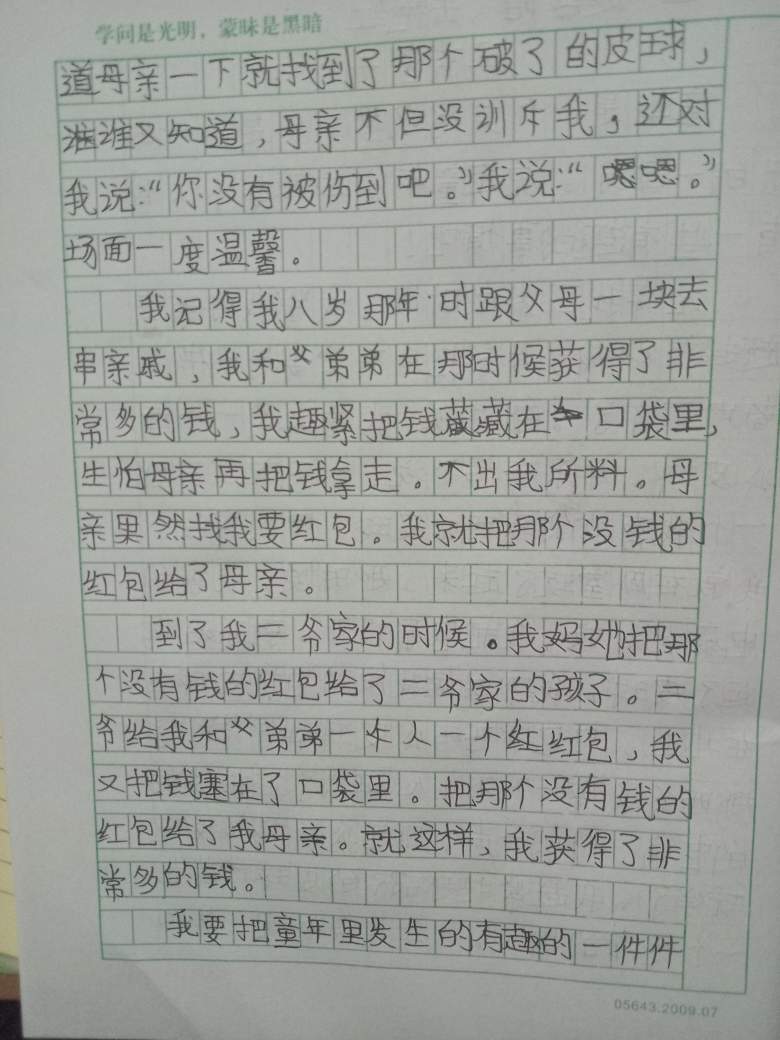 学问是光明，蒙昧是黑暗
道母亲一下就找到了那个破了的皮球，
谁又知道，母亲不但没训斥我，还对
我说：“你没有被伤到吧。”我说：“嗯嗯。”
场面一度温馨。
我记得我八岁那年时跟父母一块去
串亲戚，我和弟弟在那时候获得了非
常多的钱，我趣紧把钱藏在口袋里，
生怕母亲再把钱拿走。不出我所料。母
亲果然找我要红包。我就把那个没钱的
红包给了母亲。
到了我二爷家的时候。我妈她把那
个没有钱的红包给了二爷家的孩子。二
爷给我和弟弟一个人一个红包，我
又把钱塞在了口袋里。把那个没有钱的
红包给了我母亲。就这样，我获得了非
常多的钱。
我要把童年里发生的有趣的一件件
05643.2009.07